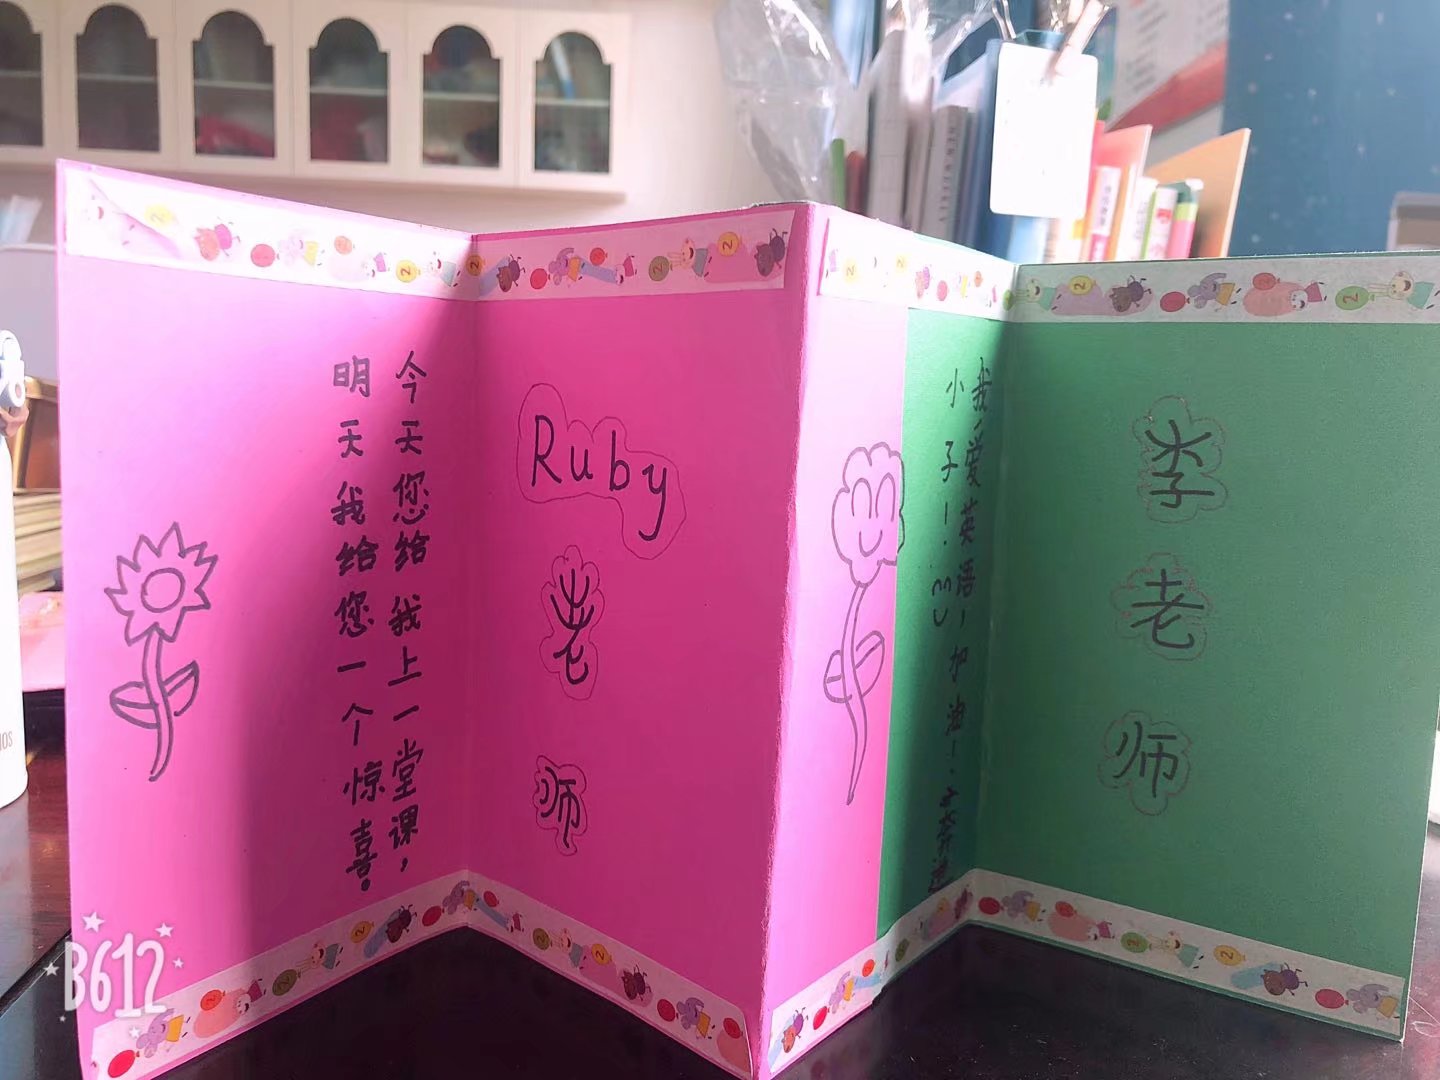 今天您给我上一堂课，
明天我给您一个惊喜。
Ruby老师
我爱英语，加油！
小子！
李老师
B612